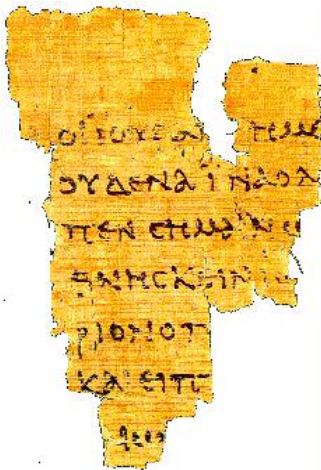 ΟΙ ΙΟΥΔΑΙ ΗΜΕ
ΟΥΔΕΝΑ ΙΝΑ Ο Λ
ΠΕΝ CΗΜΑΙΝΩ
ΘΝΗCΚΕΙΝ Ι
ΡΙΟΝ Ο Π
ΚΑΙ ΕΙΠ